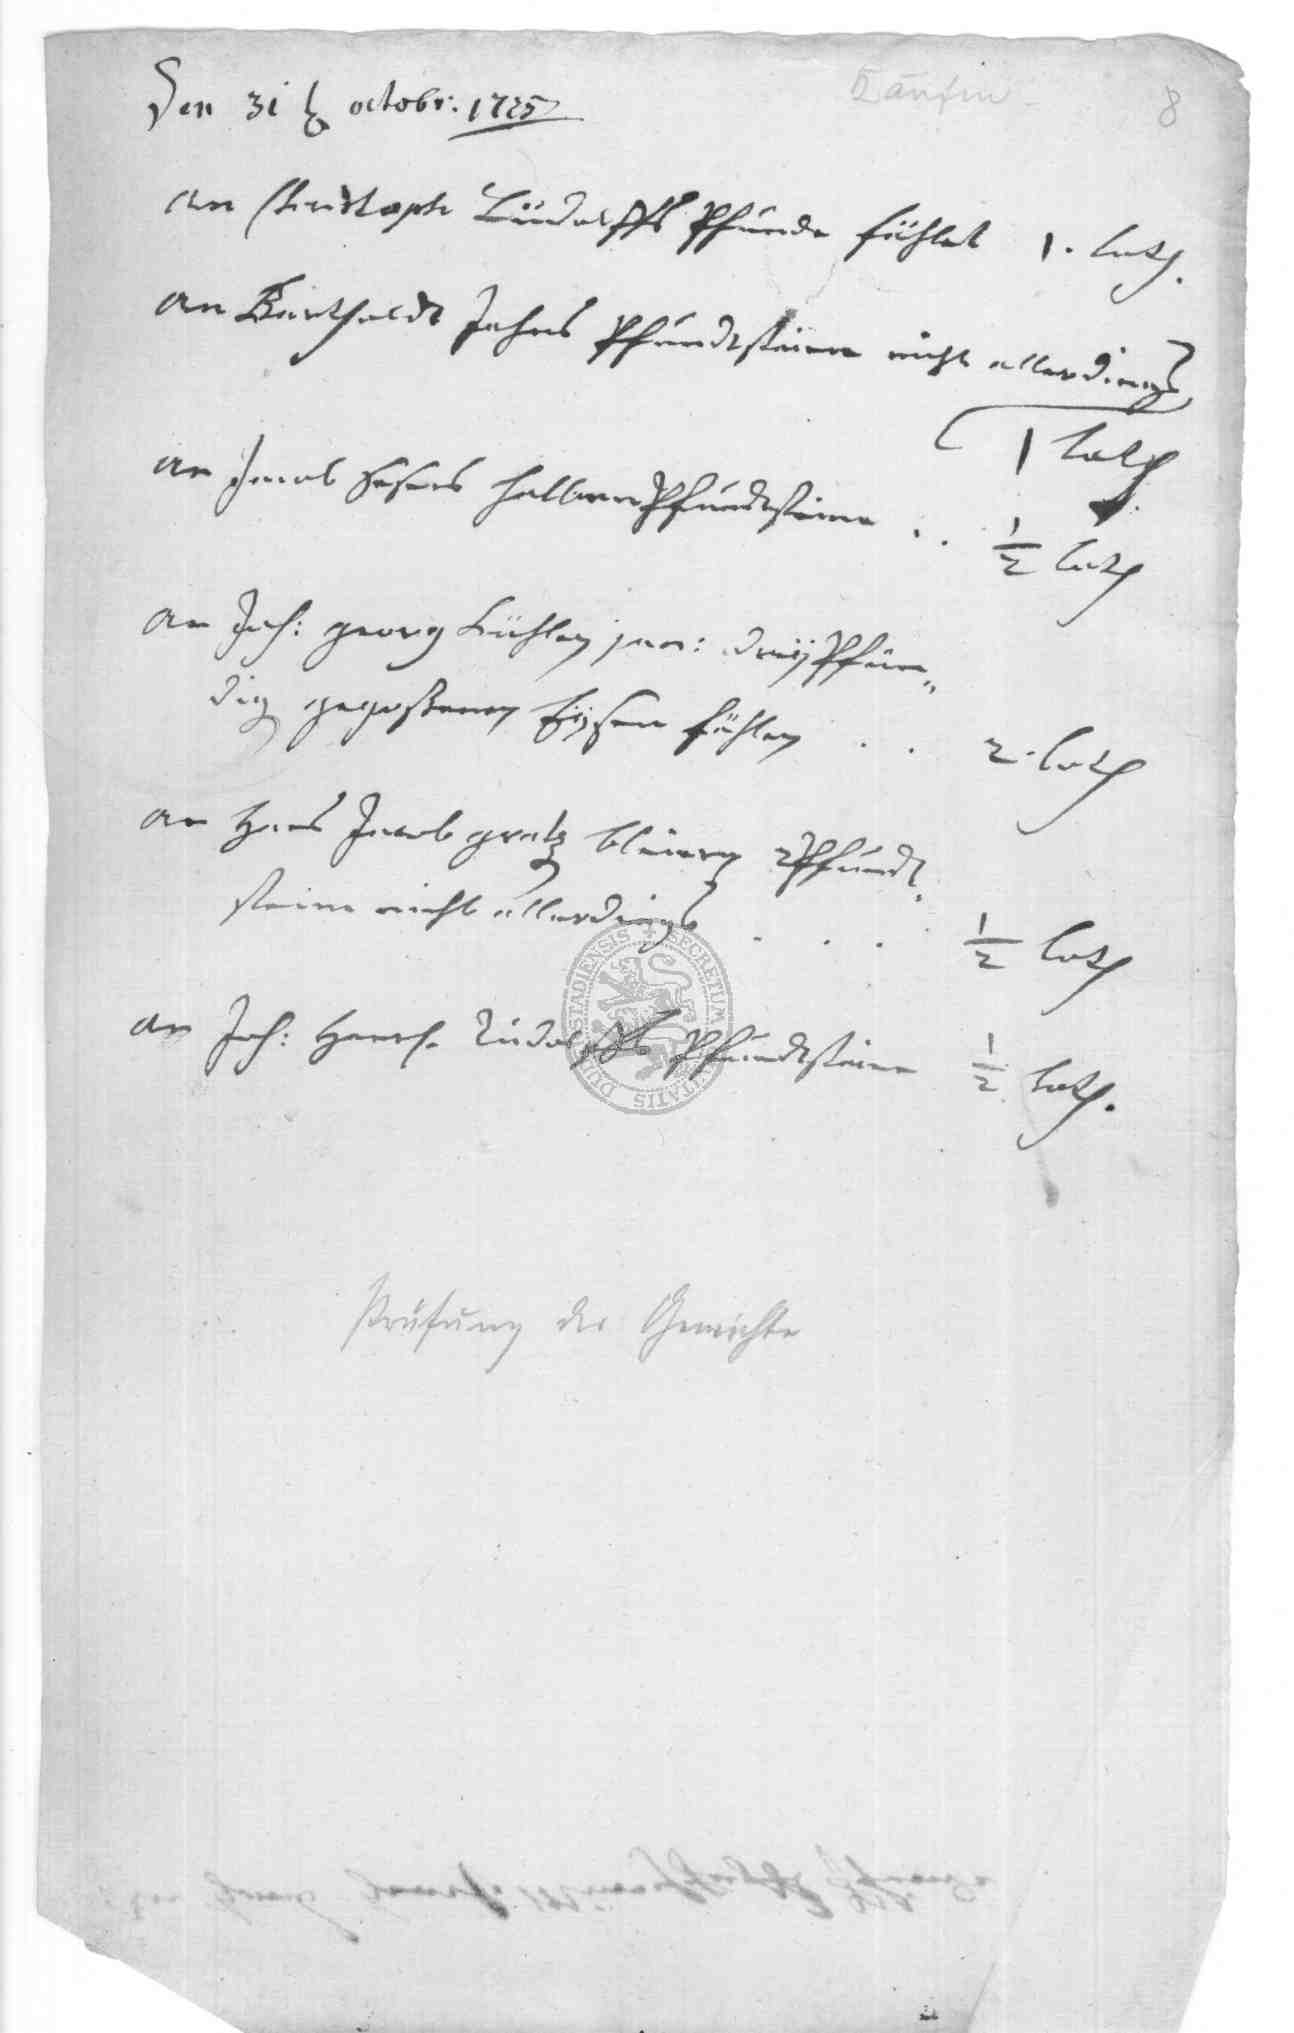 Den 31 t octobr: 1725
8
an Christoph Rudolffs Pfunde fählet 1. Loth.
an Barthholdt Jahns Pfundtsteine nicht allerdings
1 Loth
an Jacob halben Pfundtsteine . . ½ Loth
an Joh: georg jun: dreÿ Pfün„
dig gegoßenen Eÿsen fählen . . 2. Loth
an Hans Jacob gratz bleiern 2 Pfundt
steine nicht allerdings . . . . ½ Loth
an Joh: Henrh. Rudolffs Pfundtsteine ½ Loth.
SECRETUM CIVITATIS
Prüfung der Gewichte